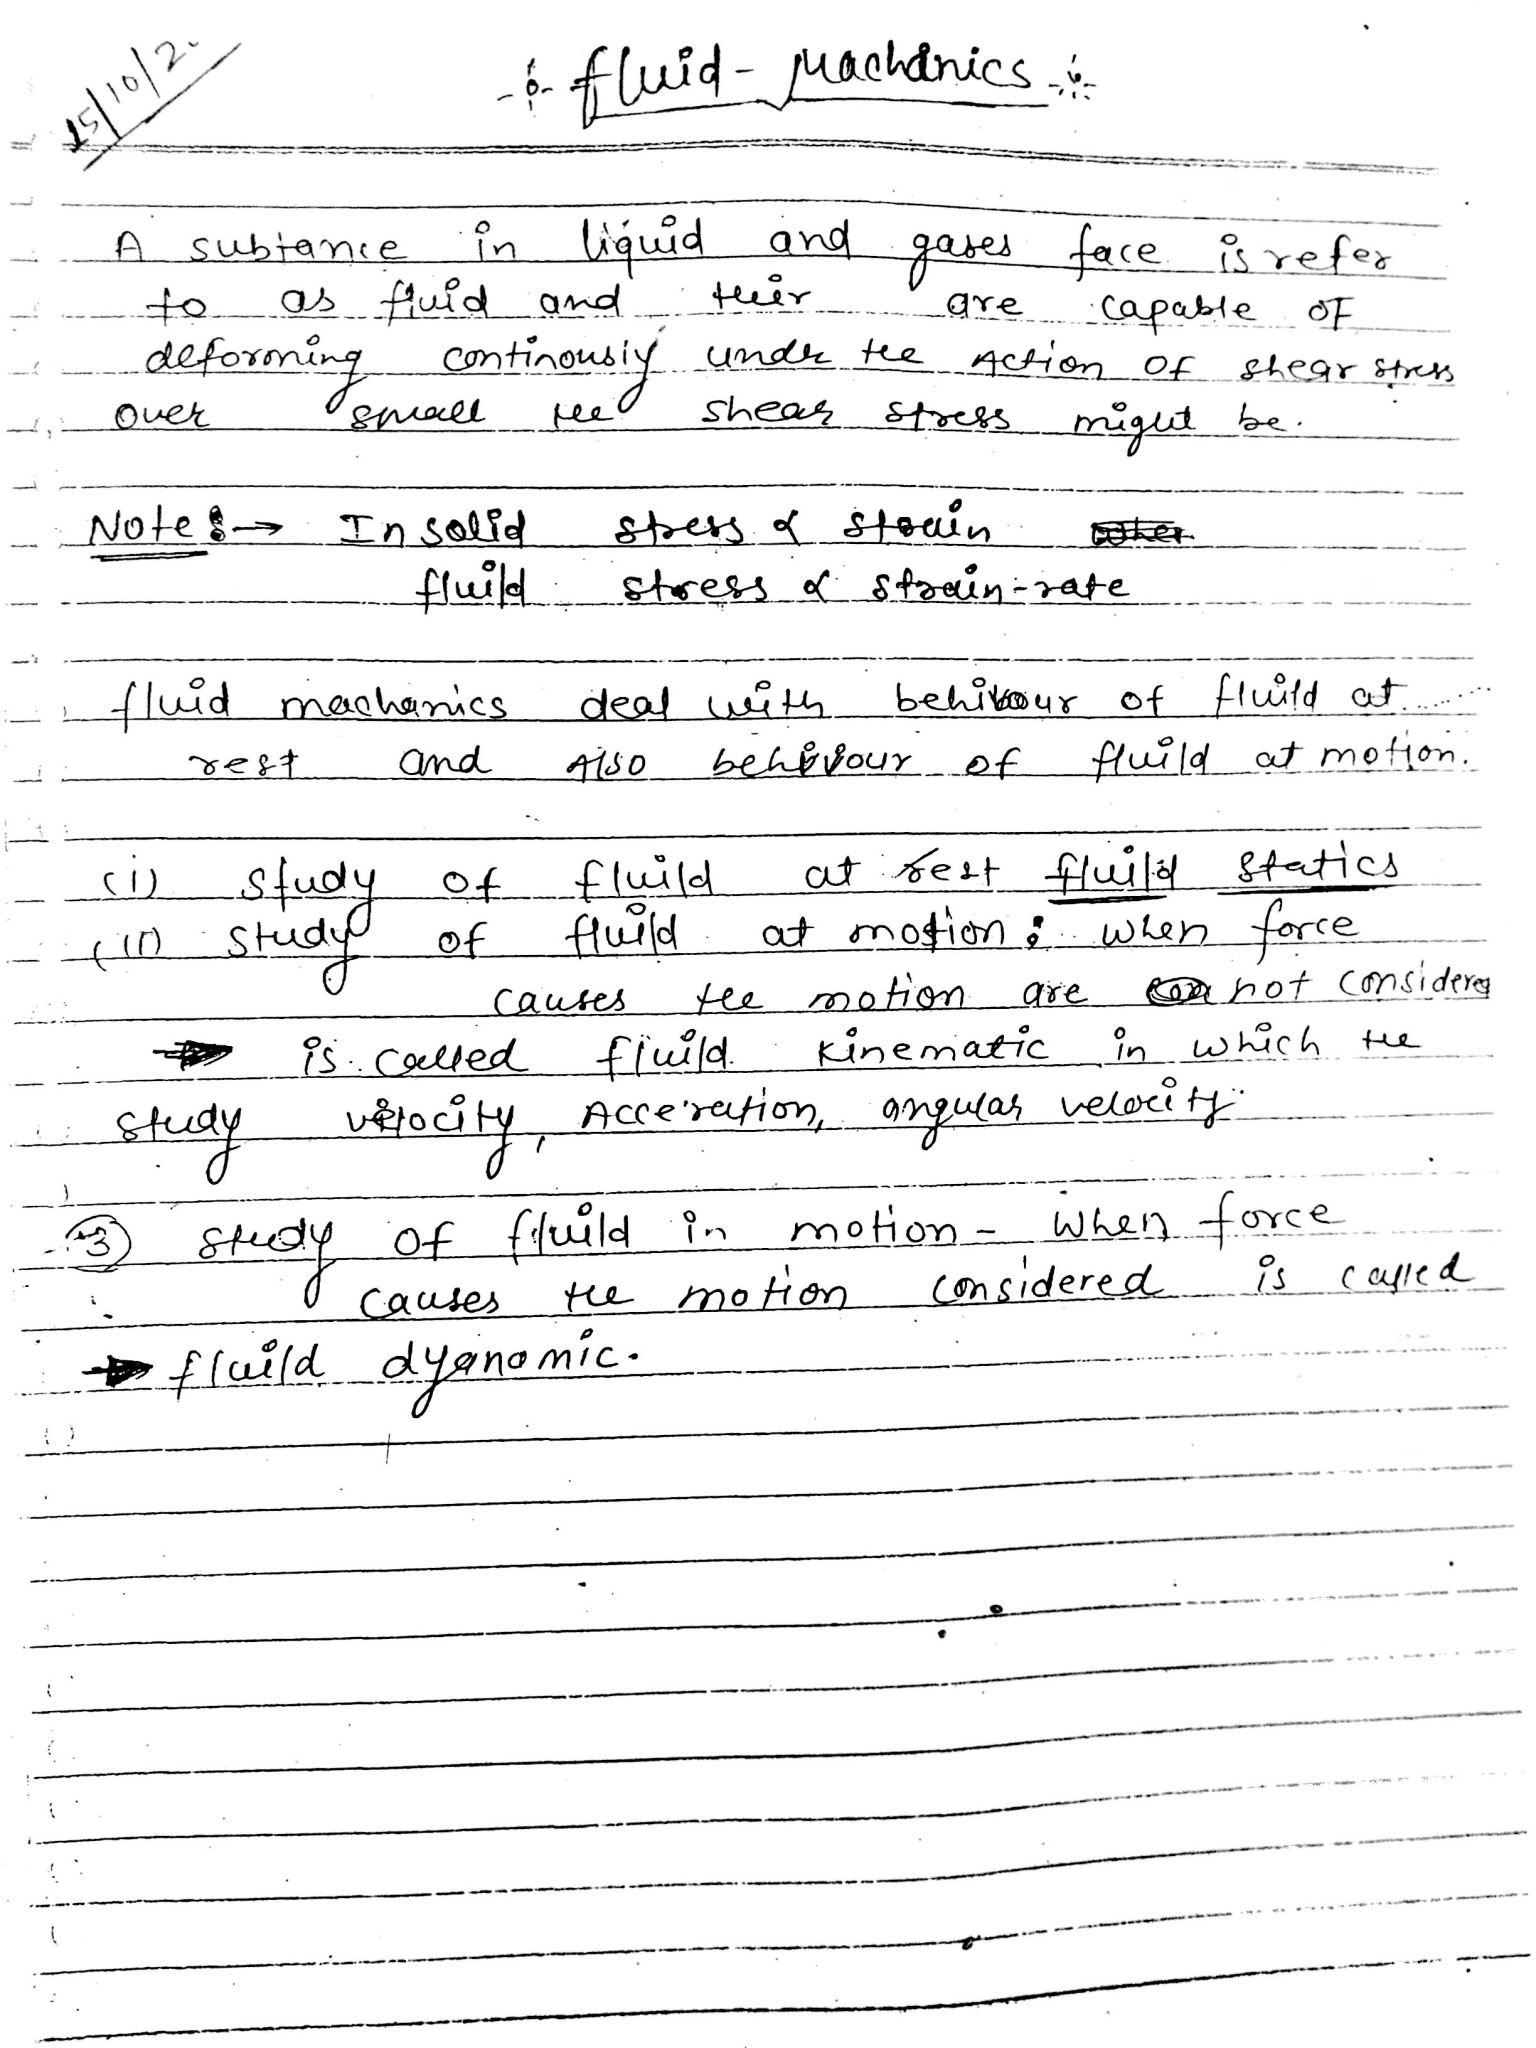 15/10/2
fluid - Machanics
A subtance in liquid and gases face is refer
to as fluid and their are capable of
deforming continously under the Action of shear stress
over small the shear stress might be.
Note :→ In solid stress α strain
fluild stress α strain-rate
fluid machanics deal with behivour of fluild at
rest and Also behivour of fluild at motion.
(i) study of fluild at rest fluild statics
(ii) study of fluild at motion : when force
causes the motion are not considered
→ is called fluild kinematic in which the
study velocity, Acceration, angular velocity
3 study of fluild in motion - when force
causes the motion considered is called
→ fluild dyanamic.